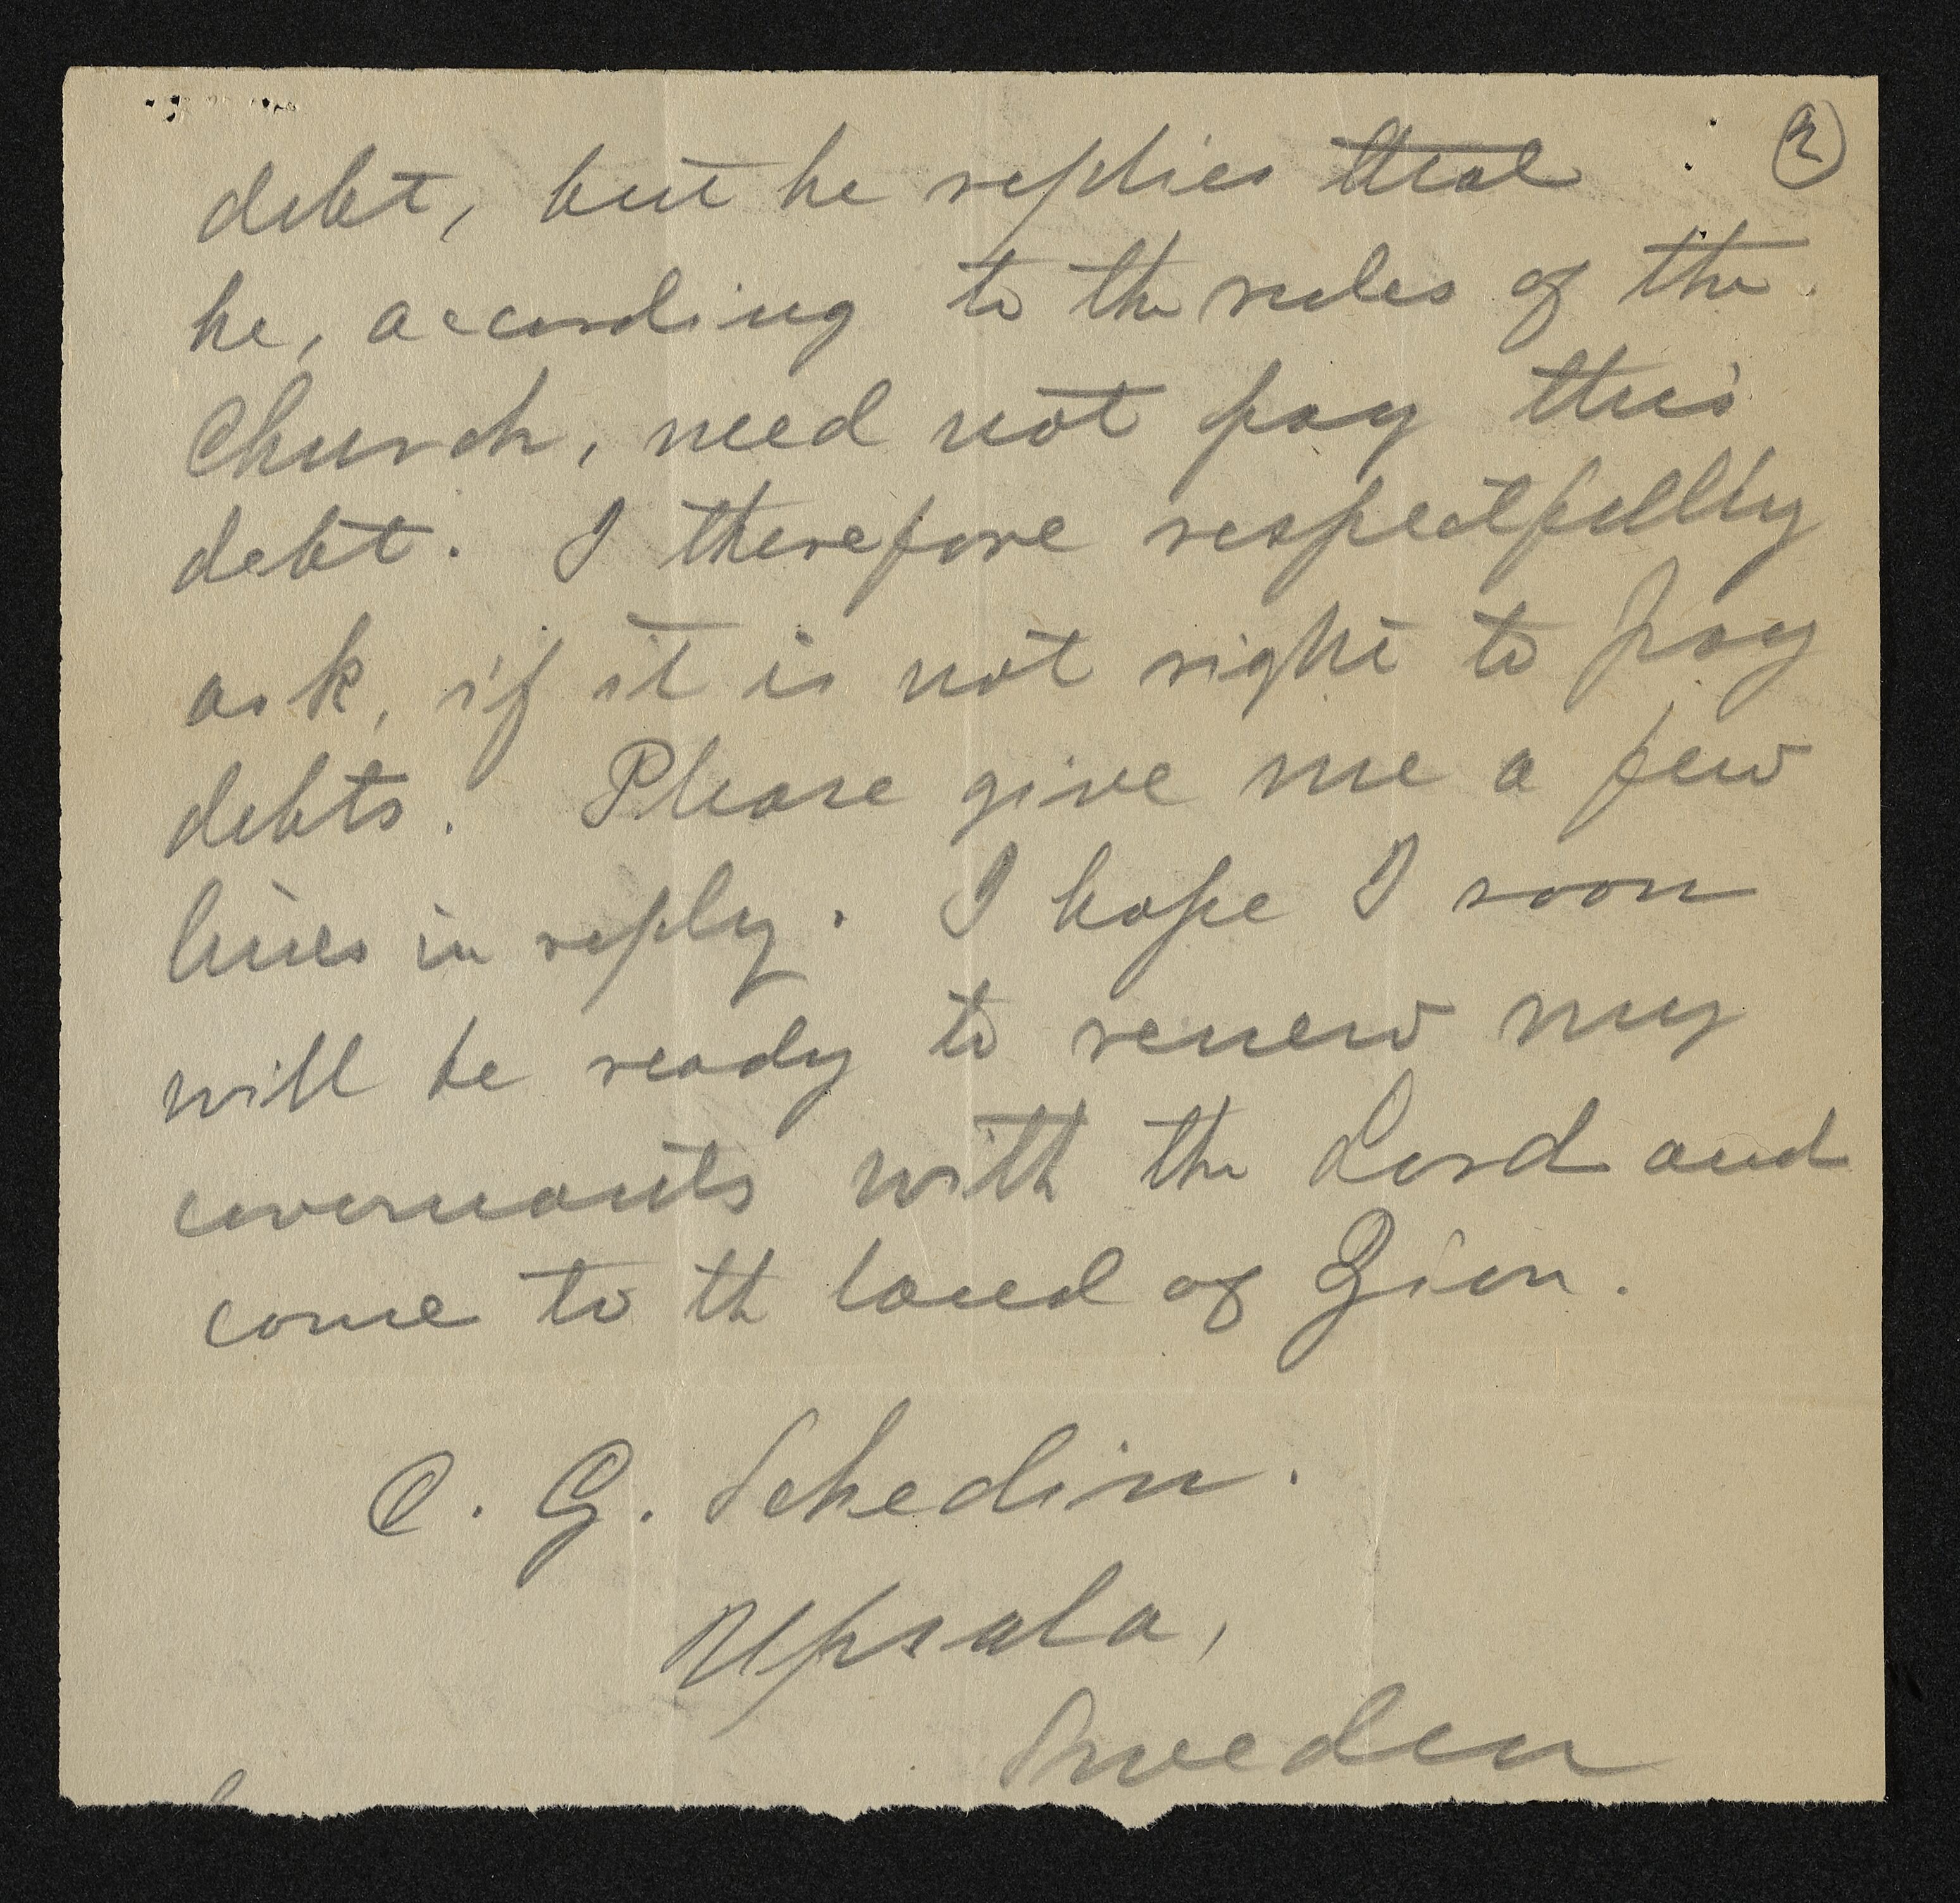 2
debt, but he replies that
he, according to the rules of the
Church, need not pay this
debt. I therefore respectfully
ask, if it is not right to pay
debts. Please give me a few
lines in reply. I hope I soon
will be ready to renew my
covenants with the Lord and
come to th land of Zion.
C. G. Schedin.
Upsala,
Sweden